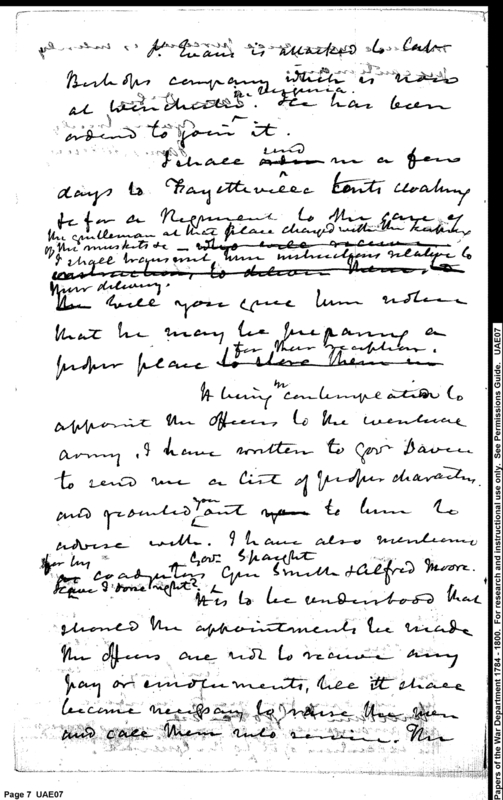 J. Evans is attached to Capt
Bishops company which is now
at Winchester in Virginia. He has been
ordered to join it.
I shall send in a few
days to Fayetteville tents cloathing
&c for a Regiment to the care of
the gentleman at that place charged with the keeping
of the muskets &c — who will receive
I shall transmit him instructions relative to
instructions, to deliver them, to
their delivery.
The Will you give him notice
that he may be preparing a
proper place for their reception. to store them in
It being in contemplation to
appoint the officers to the eventual
army, I have written to Govr Davie
to send me a list of proper characters
and pointed you out to him to
advise with. I have also mentioned
for his Govr Spaight
as coadjutors Genl Smith & Alfred Moore.
Have I done right?
It is to be understood that
should the appointments be made
the officers are not to receive any
pay or emoluments, till it shall
become necessary to raise the men
and call them into service. The
Page 7 UAE07
Papers of the War Department 1784 - 1800. For research and instructional use only. See Permissions Guide. UAE07